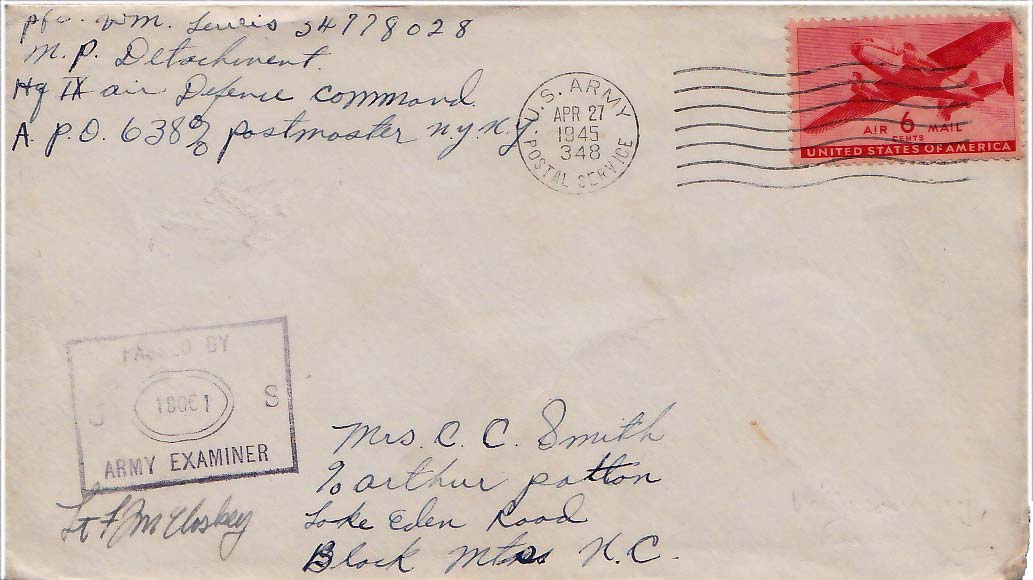 pfc. Wm. Lewis 34778028
M.P. Detachment.
Hq IX air Defense command.
A.P.O. 638 % postmaster N.Y. N.Y.
U.S. ARMY
APR 27
1945
348
POSTAL SERVICE
AIR 6 MAIL
CENTS
UNITED STATES OF AMERICA
PASSED BY
J S
ARMY EXAMINER
Lt F McCloskey
Mrs. C. C. Smith
% arthur patton
Lake Eden Road
Black Mtns N.C.